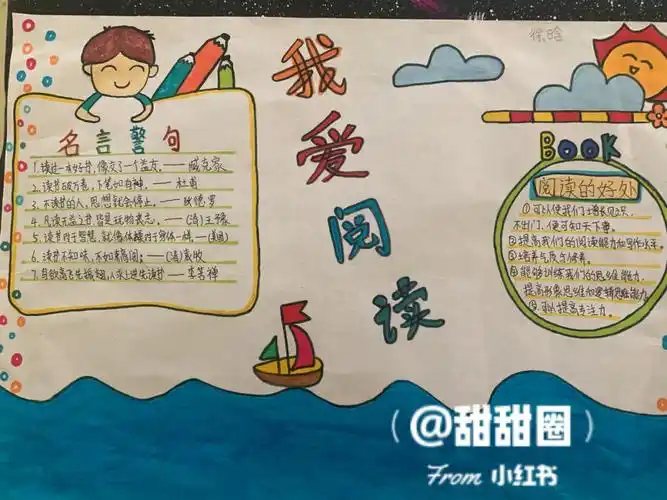 我爱阅读
名言警句
1. 读过一本好书,像交了一个益友。——臧克家
2. 读书破万卷,下笔如有神。——杜甫
3. 不读书的人,思想就会停止。——狄德罗
4. 凡读无益之书,皆是玩物丧志。——(清)王豫
5. 读书对于智慧,就像体操对于身体一样。——(美国)
6. 读书不知味,不如束高阁;——(清)袁枚
7. 鸟欲高飞先振翅,人求上进先读书。——李苦禅
BOOK
阅读的好处
①可以使我们增长见识,
不出门,便可知天下事。
②提高我们的阅读能力和写作水平
③培养气质与修养。
④能够训练我们的思维能力,
提高形象思维和逻辑思维能力
⑤可以提高专注力。
(@甜甜圈)
From 小红书